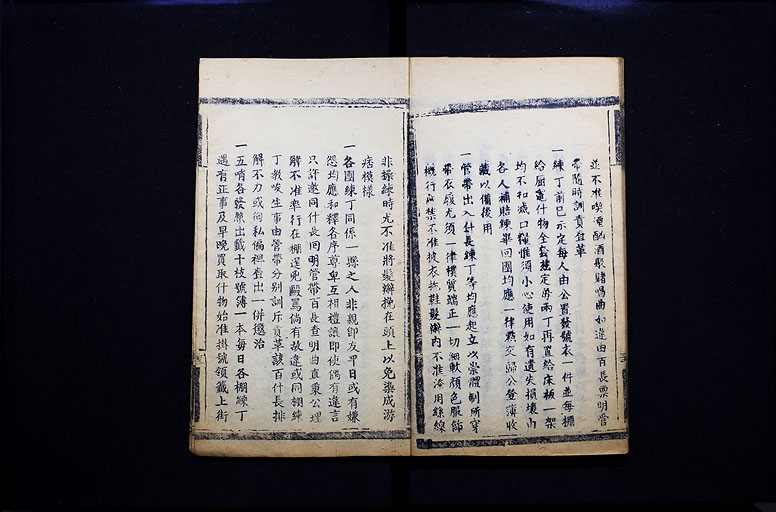 並不准喫煙酗酒聚賭唱曲如違由百長禀明管
帶隨時訓責並革
一練丁前已示定每人由公置發號衣一件並每棚
給厨竈什物全套茲定每兩丁再置給床板一架
均不扣減口糧惟須小心使用如有遺失損壞由
各人補賠練畢回團均應一律繳交歸公登簿收
藏以備後用
一管帶出入什長練丁等均應起立以崇體制所穿
帶衣履尤須一律樸質端正一切細軟顏色服飾
概行嚴禁不准披衣拖鞋髮辮內不准湊用絲線
非操練時尤不准將髮辮挽在頭上以免染成游
痞模樣
一各團練丁同係一縣之人非親即友平日或有嫌
怨均應和釋各序尊卑互相禮讓即使偶有違言
只許邀同什長回明管帶百長查明曲直秉公理
解不准率行在棚逞兇毆罵倘有故違或同棚練
丁教唆生事由管帶分別訓斥責革該百什長排
解不力或徇私偏袒查出一併懲治
一五哨各發票出籤十枝號簿一本每日各棚練丁
遇有正事及早晚買取什物始准掛號領籤上街